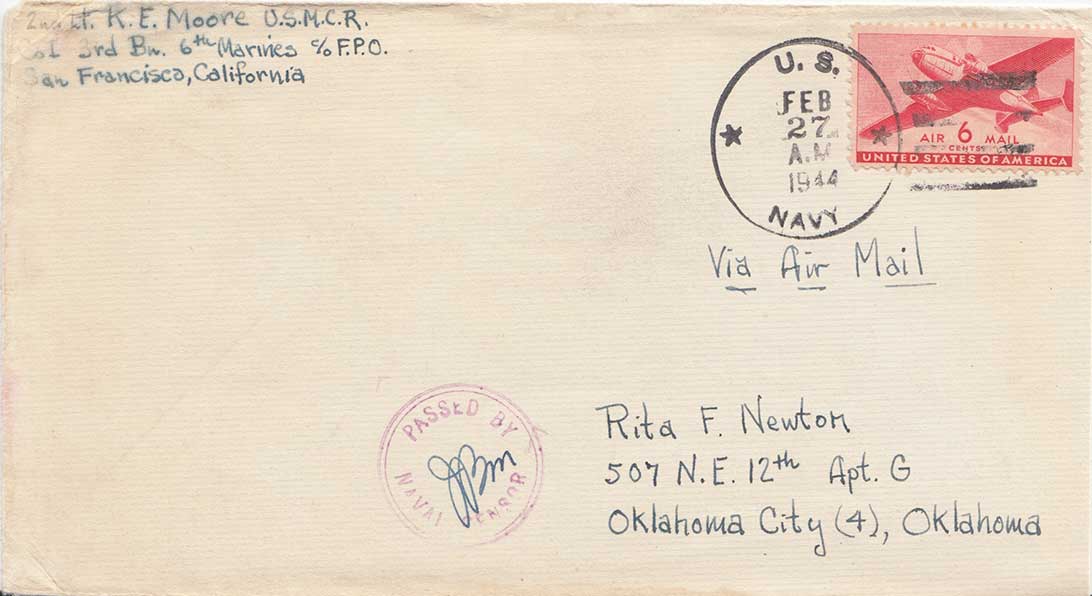 2nd Lt. K. E. Moore U.S.M.C.R.
3rd Bn. 6th Marines c/o F.P.O.
San Francisco, California
U. S.
FEB
27
A.M
1944
NAVY
AIR 6 MAIL
CENTS
UNITED STATES OF AMERICA
Via Air Mail
PASSED BY
NAVAL CENSOR
Rita F. Newton
507 N.E. 12th Apt. G
Oklahoma City (4), Oklahoma